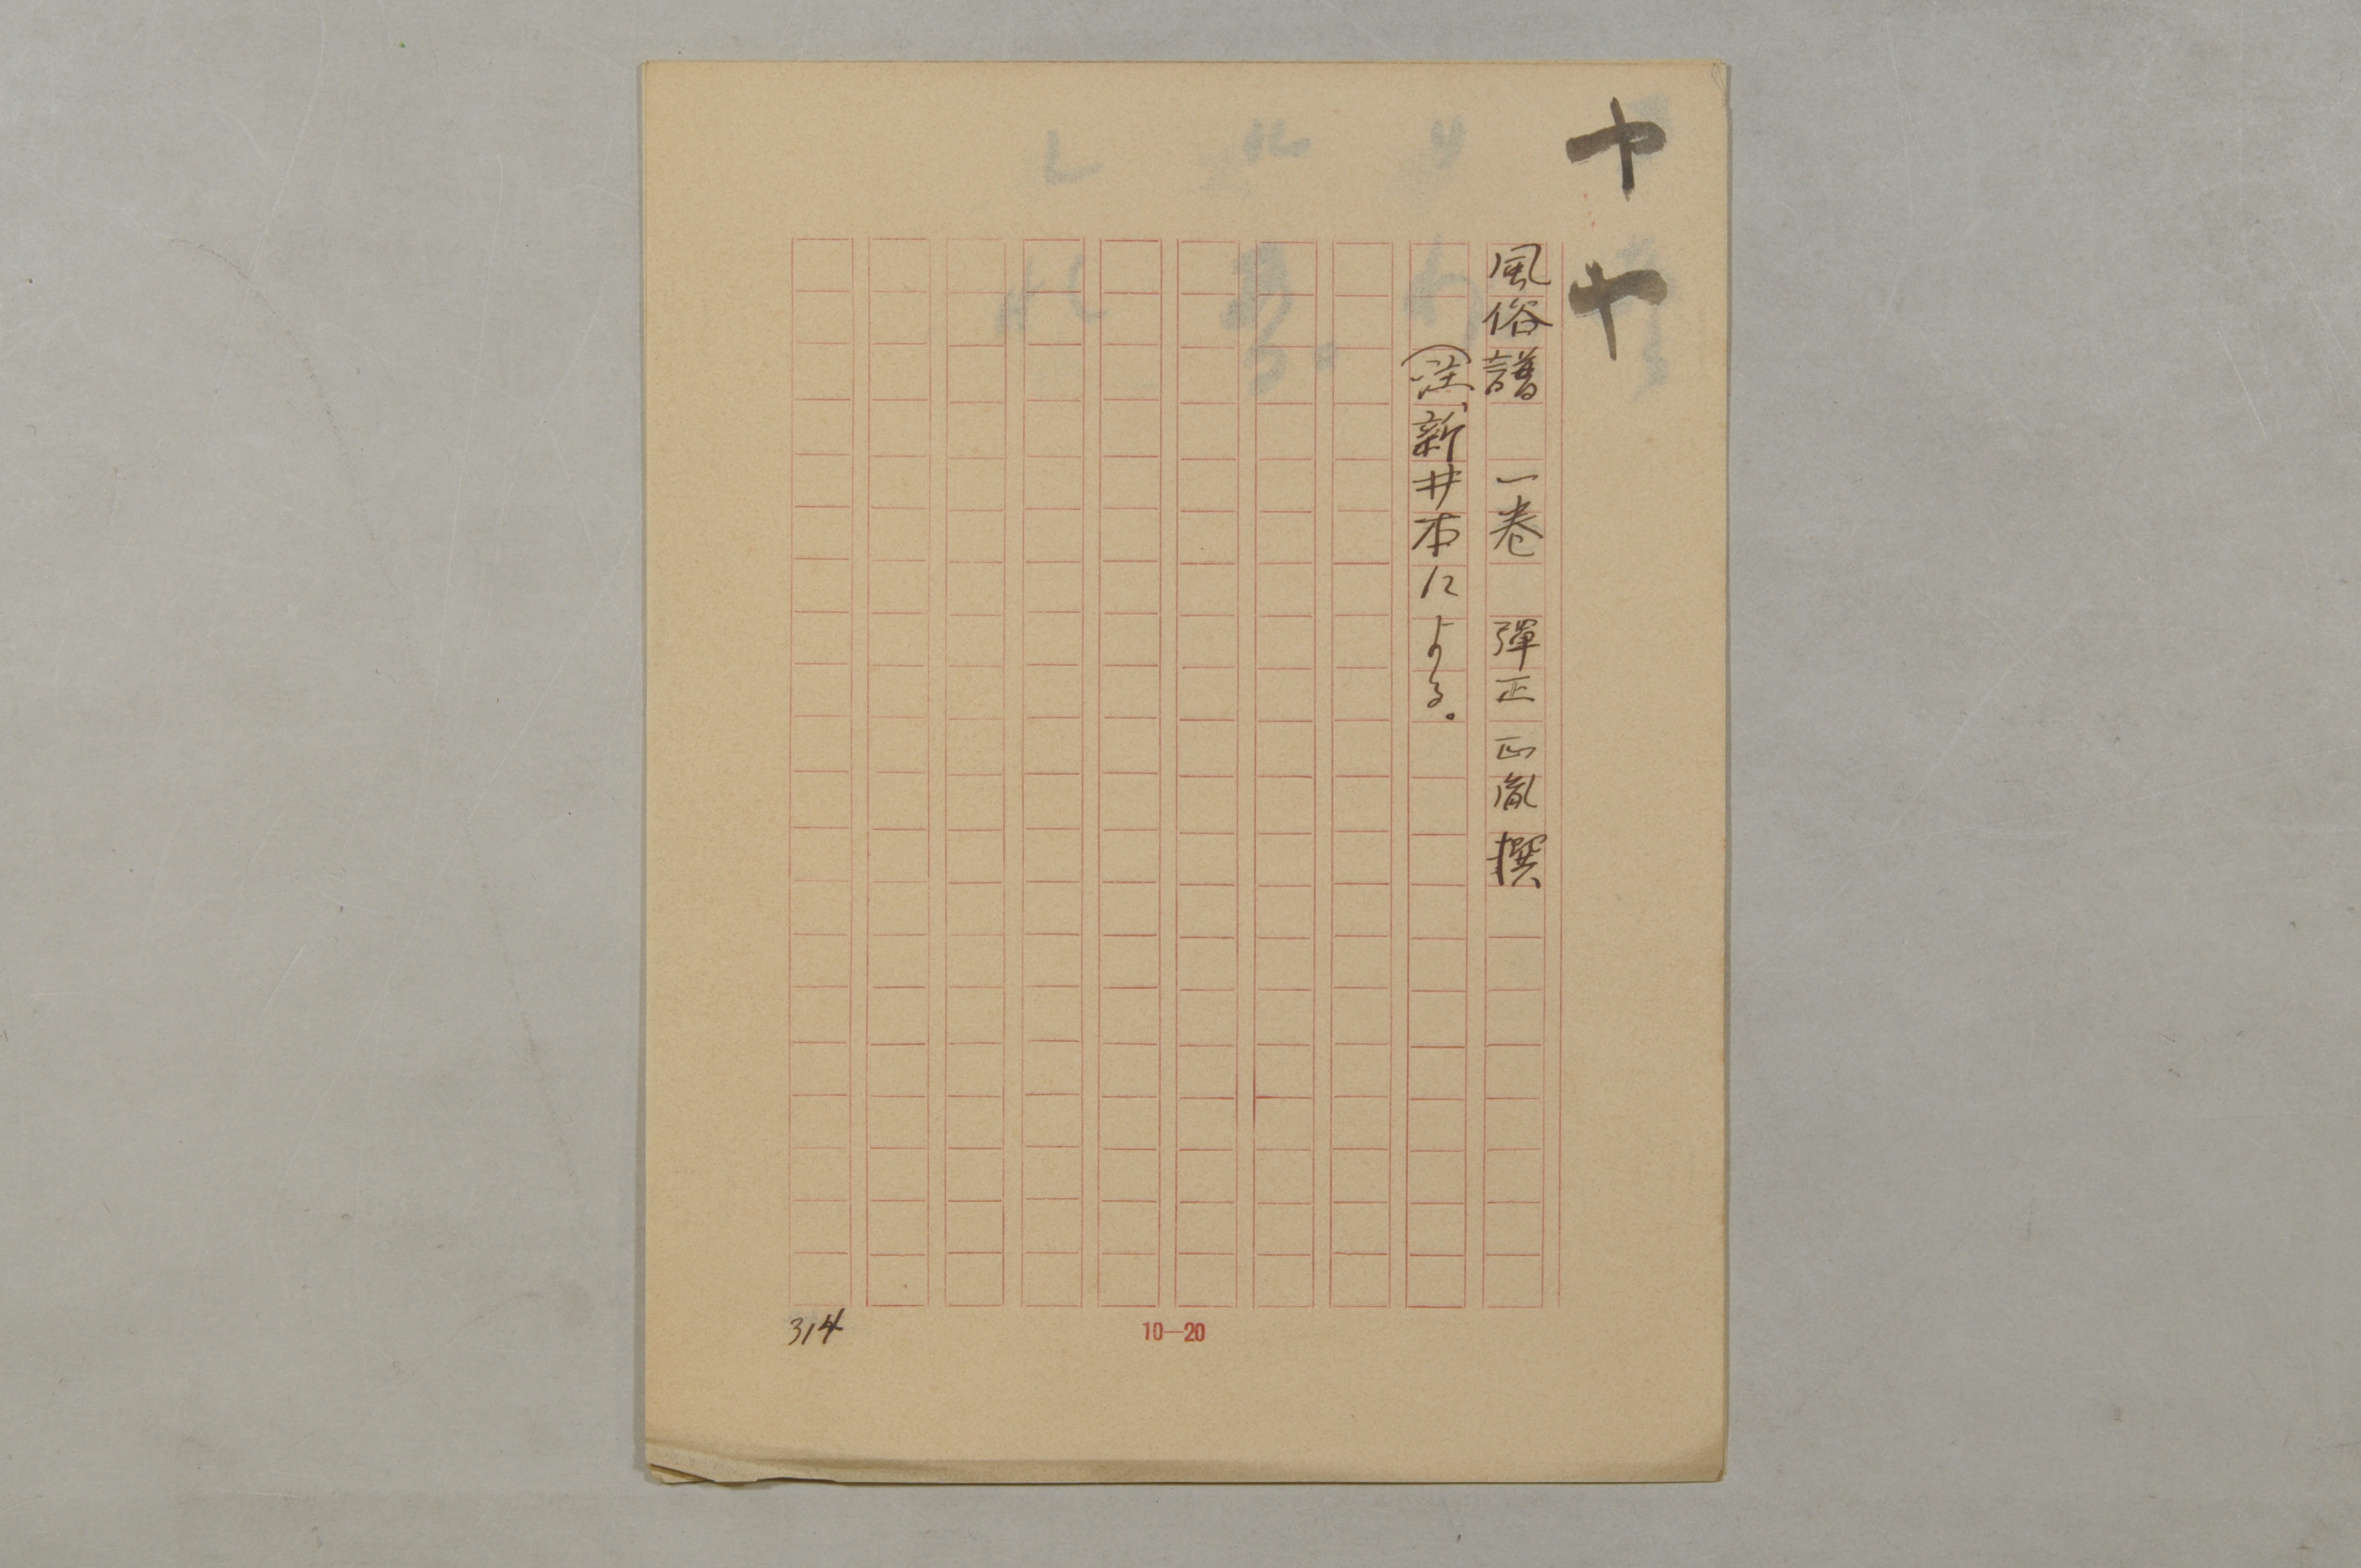 風俗譜　一巻　彈正　正胤　撰
(注)、新井本による。
314
10—20